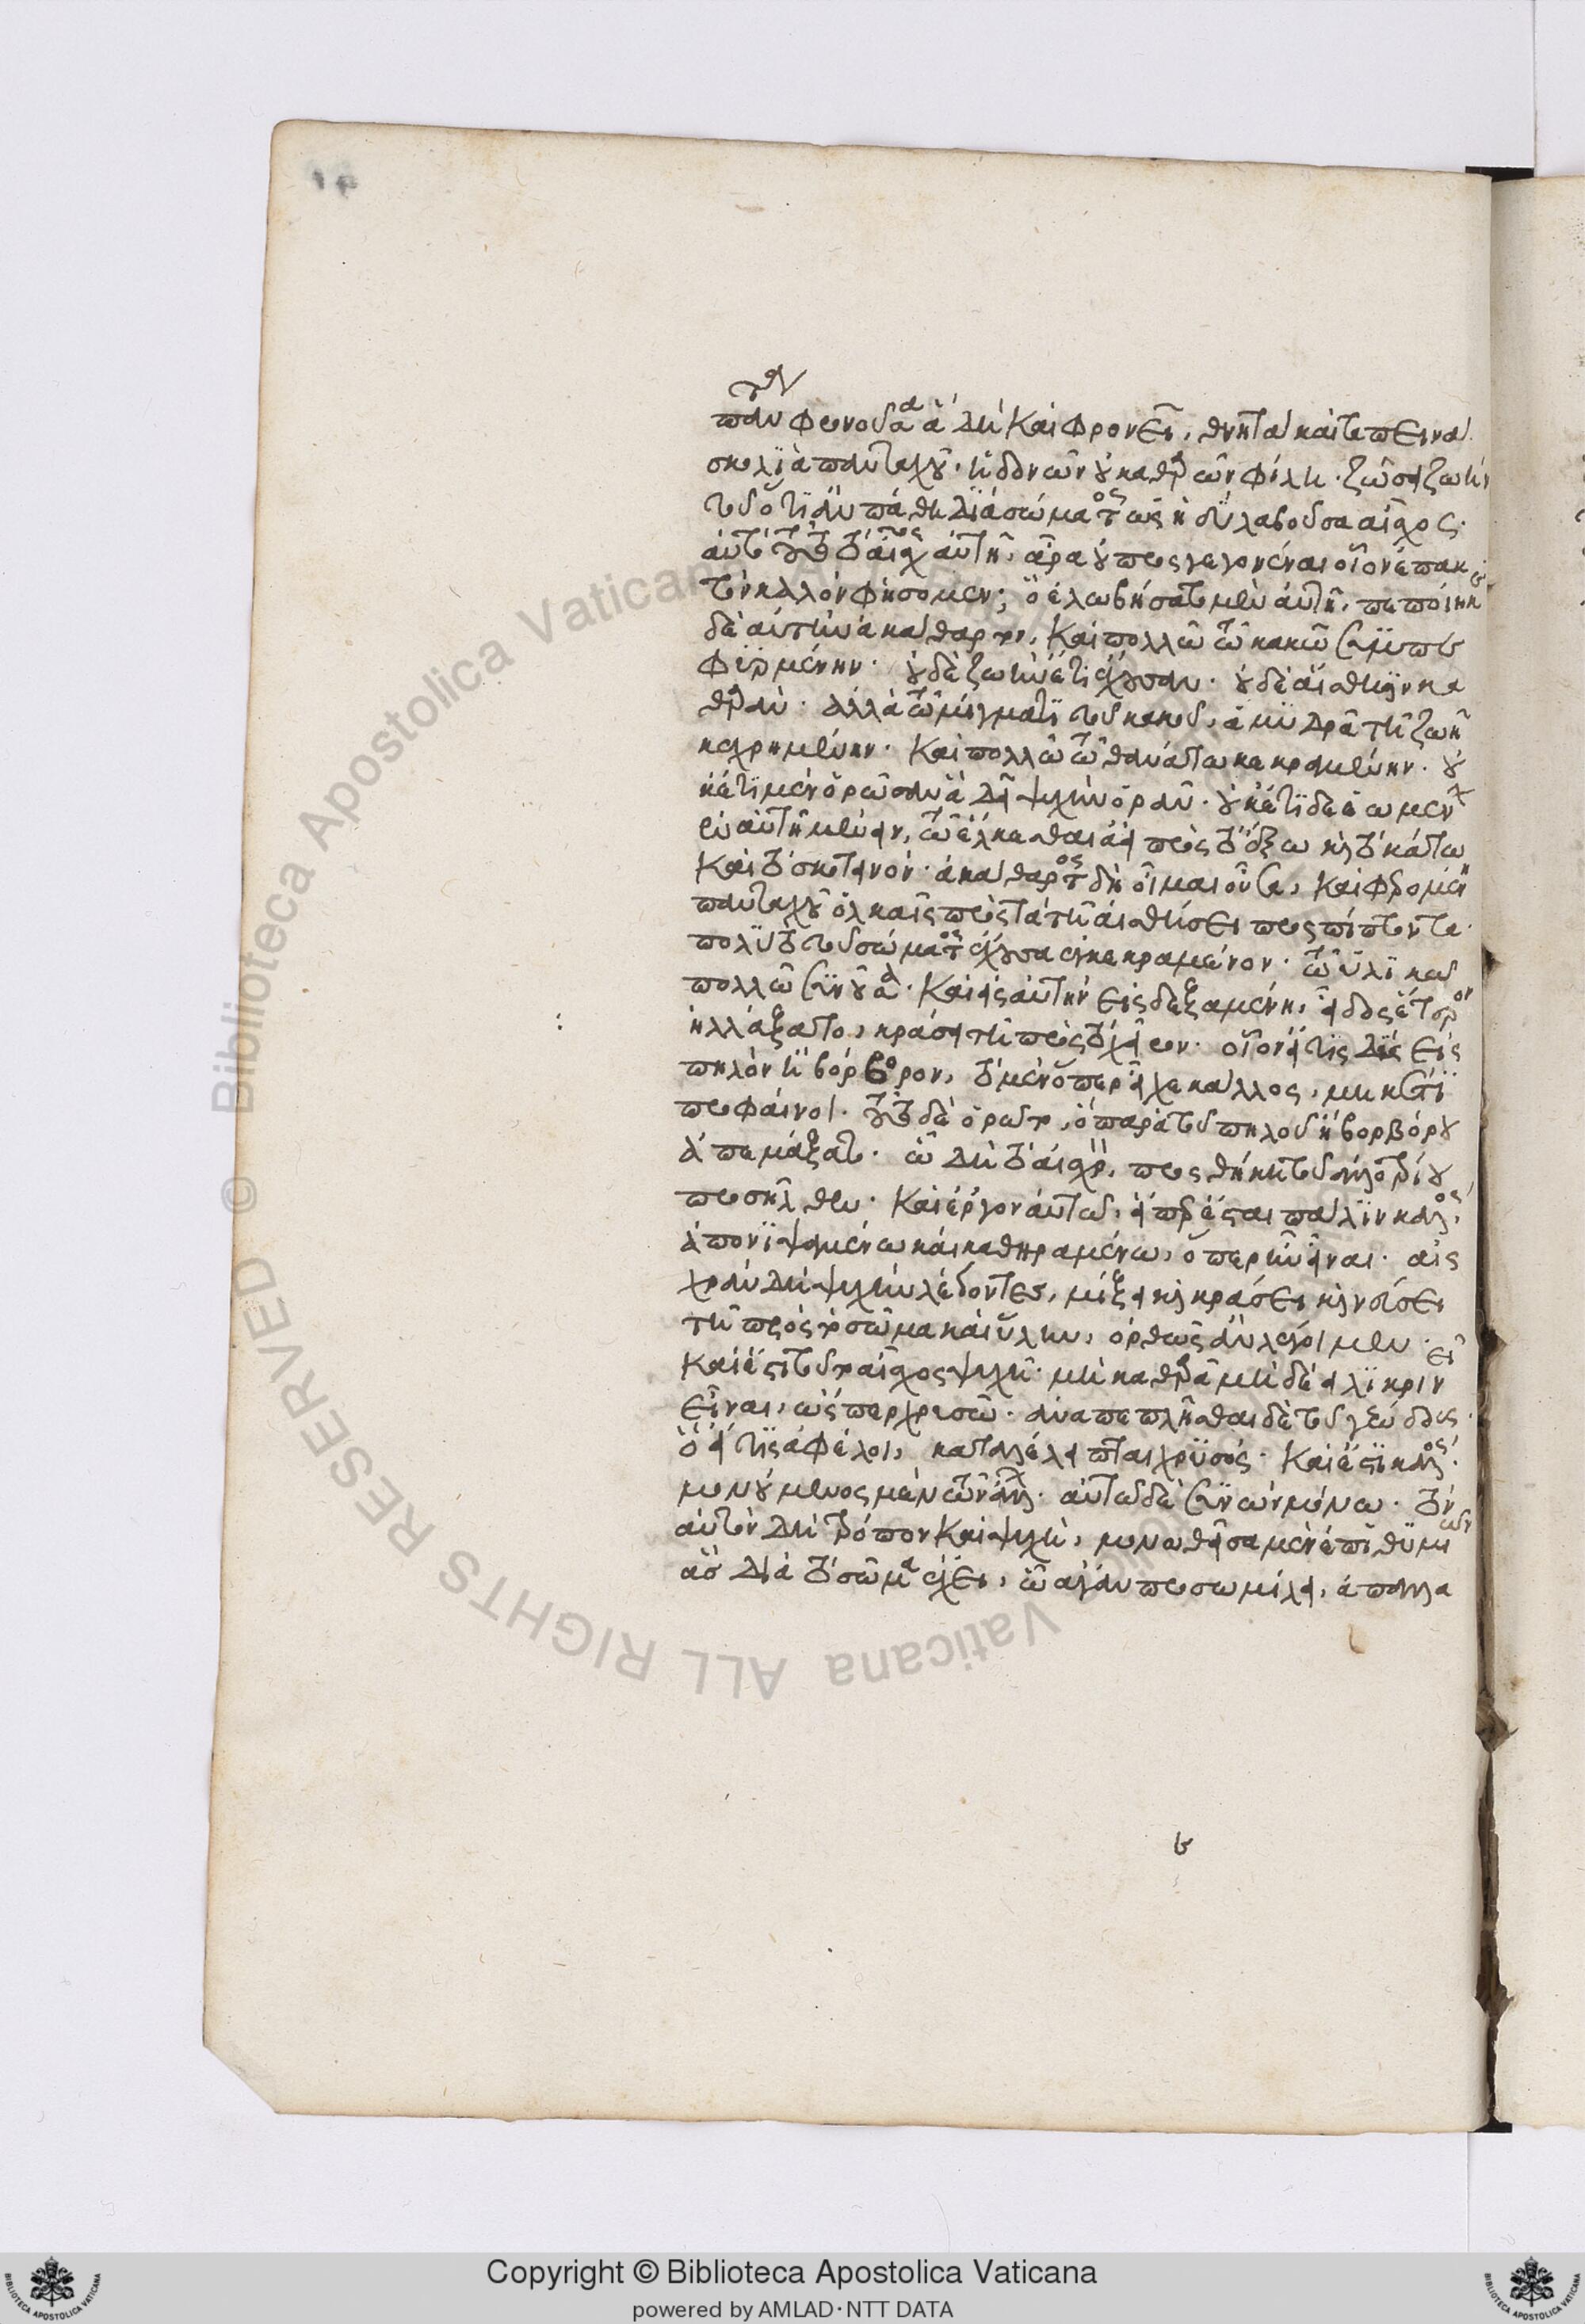 τὸν
παν φρονοῦσα ἃ δὴ καὶ φρονεῖ, θνητὰ καὶ ταπεινα.
σκολιὰ πανταχοῦ. ἡδονῶν οὐ καθαρῶν φίλη. ζῶσα ζωὴν
τοῦ ὅτι ἂν πάθη διὰ σώματος ὡς ἡδὺ λαβοῦσα αἶσχος.
αὐτὸ τοῦτο τὸ αἶσχος αὐτῆ, ἆρα οὐ προσγεγονέναι οἷον ἐπακ
τὸν καλὸν φήσομεν; ὃ ἐλωβήσατο μὲν αὐτῆ, πεποίηκε
δὲ αὐτὴν ἀκάθαρτον, καὶ πολλῶ τῶ κακῶ συμπε
φυρμένην. οὐδὲ ζωὴν ἔτι ἔχουσαν. οὐδὲ αἴσθησιν κα
θαράν. ἀλλὰ τῶ μίγματι τοῦ κακοῦ, ἀμυδρᾶ τῆ ζωῆ
κεχρημένην. καὶ πολλῶ τῶ θανάτω κεκραμένην. οὐ
κέτι μὲν ὁρῶσαν ἃ δεῖ ψυχὴν ὁρᾶν. οὐκέτι δὲ ἐωμένην
ἐν αὐτῆ μένειν, τῶ ἕλκεσθαι ἀεὶ πρὸς τὸ ἔξω καὶ τὸ κάτω
καὶ τὸ σκοτεινόν. ἀκάθαρτος δὴ οἶμαι οὖσα, καὶ φερομένη
πανταχοῦ ὁλκαῖς πρὸς τὰ τῆ αἰσθήσει προσπίπτοντα.
πολὺ τὸ τοῦ σώματος ἔχουσα ἐγκεκραμένον. τῶ ὑλικῶ
πολλῶ συνοῦσα. καὶ εἰς αὐτὴν εἰσδεξαμένη, εἶδος ἕτερον
ἠλλάξατο, κράσει τῆ πρὸς τὸ χεῖρον. οἷον εἴ τις δὺς εἰς
πηλὸν ἢ βόρβορον, τὸ μὲν ὅπερ εἶχε κάλλος, μηκέτι
προφαίνοι. τοῦτο δὲ ὁρῶτο, ὃ παρὰ τοῦ πηλοῦ ἢ βορβόρου
ἀπεμάξατο. ὧ δὴ τὸ αἰσχρὸν, προσθήκη τοῦ ἀλλοτρίου
προσῆλθεν. καὶ ἔργον αὐτῶ, εἴπερ ἔσται πάλιν καλὸς,
ἀπονιψαμένω καὶ καθηραμένω, ὅπερ ἦν εἶναι. αἰς
χρὰν δὴ ψυχὴν λέγοντες, μίξει καὶ κράσει καὶ νεύσει
τῆ πρὸς τὸ σῶμα καὶ ὕλην, ὀρθῶς ἂν λέγοιμεν.
καὶ ἔστι τοῦτο αἶσχος ψυχῆ. μὴ καθαρᾶ μηδὲ εἰλικρινεῖ
εἶναι, ὥσπερ χρυσῶ. ἀναπεπλῆσθαι δὲ τοῦ γεώδους.
ὃ εἴ τις ἀφέλοι, καταλέλειπται χρυσός. καὶ ἔστι καλός.
μονούμενος μὲν τῶν ἄλλων. αὐτῶ δὲ συνὼν μόνω. τὸν
αὐτὸν δὴ τρόπον καὶ ψυχὴ, μονωθεῖσα μὲν ἐπιθυμιῶν
ἃς διὰ τὸ σῶμα ἔχει, ὧ ἄγαν προσωμίλει, ἀπαλλα